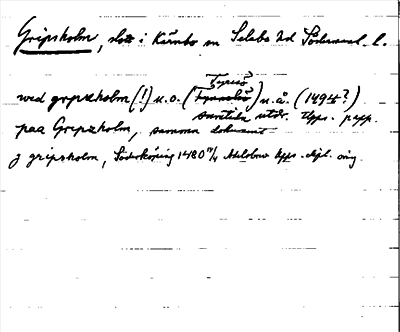 Gripsholm, slott i Kärnbo sn Selebo hd Södermanl. l.
wed grypzholm (!) u.o. (Tyresö) u.å. (1494?)
samtida utdr. Upps. papp.
paa Grepzholm, samma dokument
j gripsholm, Söderköping 1480 11/4 Adelsbrev Upps. dipl. orig.